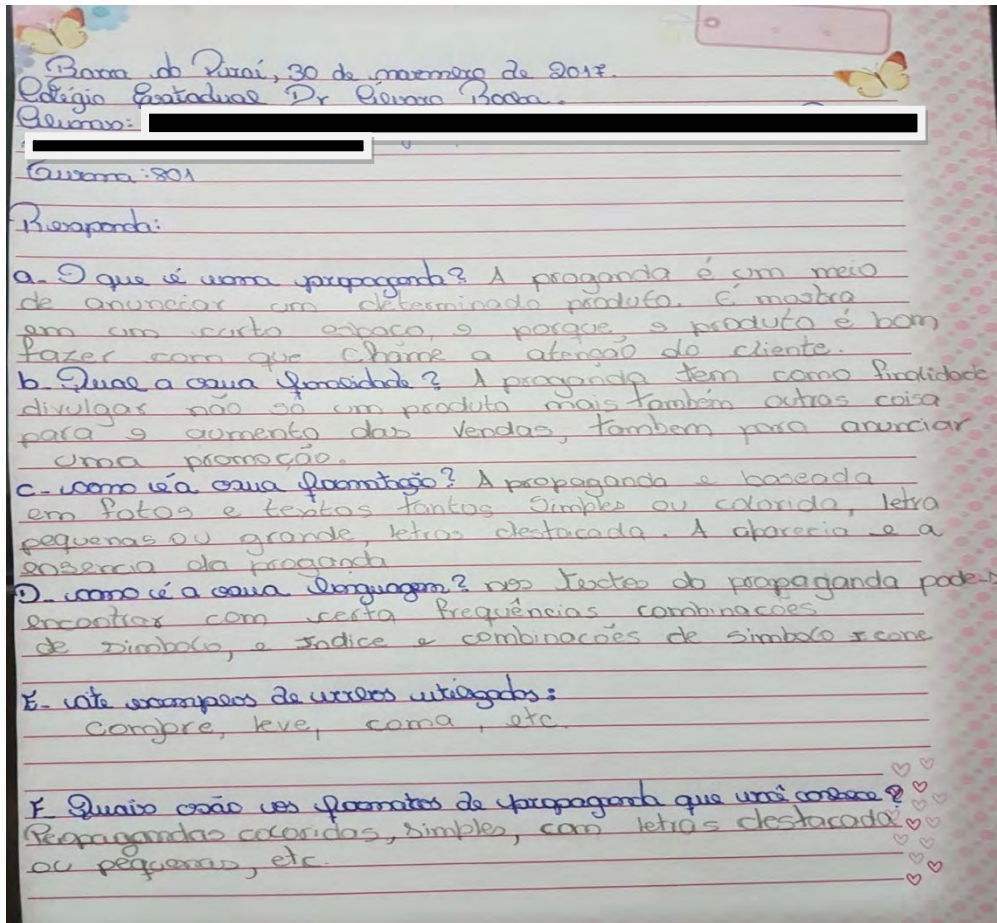 Barra do Piraí, 30 de novembro de 2017.
Colégio Estadual Dr Álvaro Rocha.
Alunas:
Turma: 801
Responda:
a- O que é uma propaganda? A proganda é um meio
de anunciar um determinado produto. E mostra
em um curto espaço, o porque o produto é bom
fazer com que chame a atenção do cliente.
b- Qual a sua finalidade? A proganda tem como finalidade
divulgar não só um produto mais também outras coisa
para o aumento das vendas, tambem para anunciar
uma promoção.
c- como é a sua formatação? A propaganda e baseada
em fotos e textos tantos simples ou colorida, letra
pequenas ou grande, letras destacada. A aparecia e a
esencia da proganda
D- como é a sua linguagem? nos textos da propaganda pode-s
encontrar com certa frequências combinacoes
de simbolo, e Indice e combinacões de simbolo icone
E- cite exemplos de verbos utilizados:
compre, leve, coma, etc.
F Quais são os formatos de propaganda que você conhece?
Propagandas coloridas, simples, com letras destacada
ou pequenas, etc.